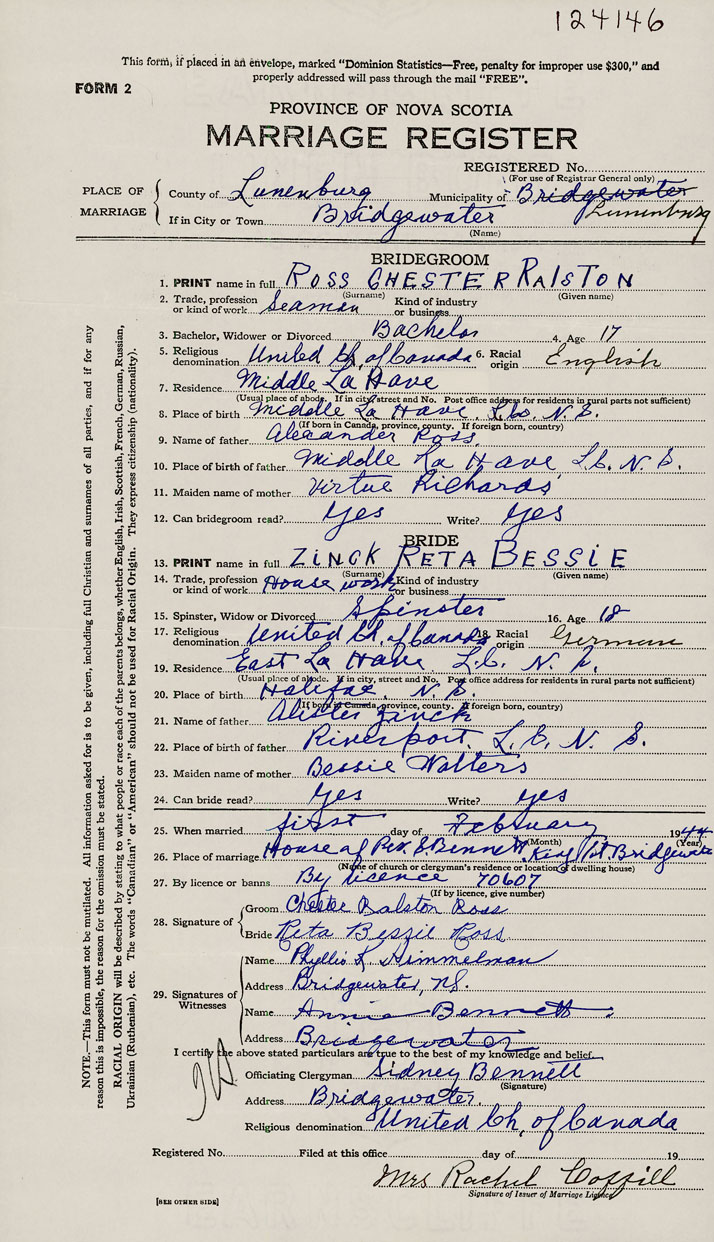 124146
This form, if placed in an envelope, marked "Dominion Statistics—Free, penalty for improper use $300," and
properly addressed will pass through the mail "FREE".
FORM 2
PROVINCE OF NOVA SCOTIA
MARRIAGE REGISTER
REGISTERED No.
(For use of Registrar General only)
PLACE OF MARRIAGE
County of Lunenburg Municipality of Bridgewater Lunenburg
If in City or Town Bridgewater
(Name)
BRIDEGROOM
1. PRINT name in full ROSS CHESTER RALSTON
(Surname) (Given name)
2. Trade, profession or kind of work Seaman Kind of industry or business
3. Bachelor, Widower or Divorced Bachelor 4. Age 17
5. Religious denomination United Ch. of Canada 6. Racial origin English
7. Residence Middle La Have
(Usual place of abode. If in city, street and No. Post office address for residents in rural parts not sufficient)
8. Place of birth Middle La Have, N.S.
(If born in Canada, province, county. If foreign born, country)
9. Name of father Alexander Ross
10. Place of birth of father Middle La Have, L.C. N.S.
11. Maiden name of mother Virtue Richards
12. Can bridegroom read? Yes Write? Yes
BRIDE
13. PRINT name in full ZINCK RETA BESSIE
(Surname) (Given name)
14. Trade, profession or kind of work House work Kind of industry or business
15. Spinster, Widow or Divorced Spinster 16. Age 18
17. Religious denomination United Ch. of Canada 18. Racial origin German
19. Residence East La Have L.C. N.S.
(Usual place of abode. If in city, street and No. Post office address for residents in rural parts not sufficient)
20. Place of birth Halifax, N.S.
(If born in Canada, province, county. If foreign born, country)
21. Name of father Alister Zinck
22. Place of birth of father Riverport, L.C. N.S.
23. Maiden name of mother Bessie Wolters
24. Can bride read? Yes Write? Yes
25. When married first day of February 1944
(Month) (Year)
26. Place of marriage House of Rev. S Bennett, King St. Bridgewater
(Name of church or clergyman's residence or location of dwelling house)
27. By licence or banns By licence 70607
(If by licence, give number)
28. Signature of
Groom Chester Ralston Ross
Bride Reta Bessie Ross
29. Signatures of Witnesses
Name Phyllis L. Himmelman
Address Bridgewater, NS.
Name Annie Bennett
Address Bridgewater
I certify the above stated particulars are true to the best of my knowledge and belief.
Officiating Clergyman Sidney Bennett
(Signature)
Address Bridgewater
Religious denomination United Ch. of Canada
Registered No. Filed at this office day of 19
Mrs Rachel Coffill
Signature of Issuer of Marriage Licence
[SEE OTHER SIDE]
NOTE.—This form must not be mutilated. All information asked for is to be given, including full Christian and surnames of all parties, and if for any
reason this is impossible, the reason for the omission must be stated.
RACIAL ORIGIN will be described by stating to what people or race each of the parents belongs, whether English, Irish, Scottish, French, German, Russian,
Ukrainian (Ruthenian), etc. The words "Canadian" or "American" should not be used for Racial Origin. They express citizenship (nationality).